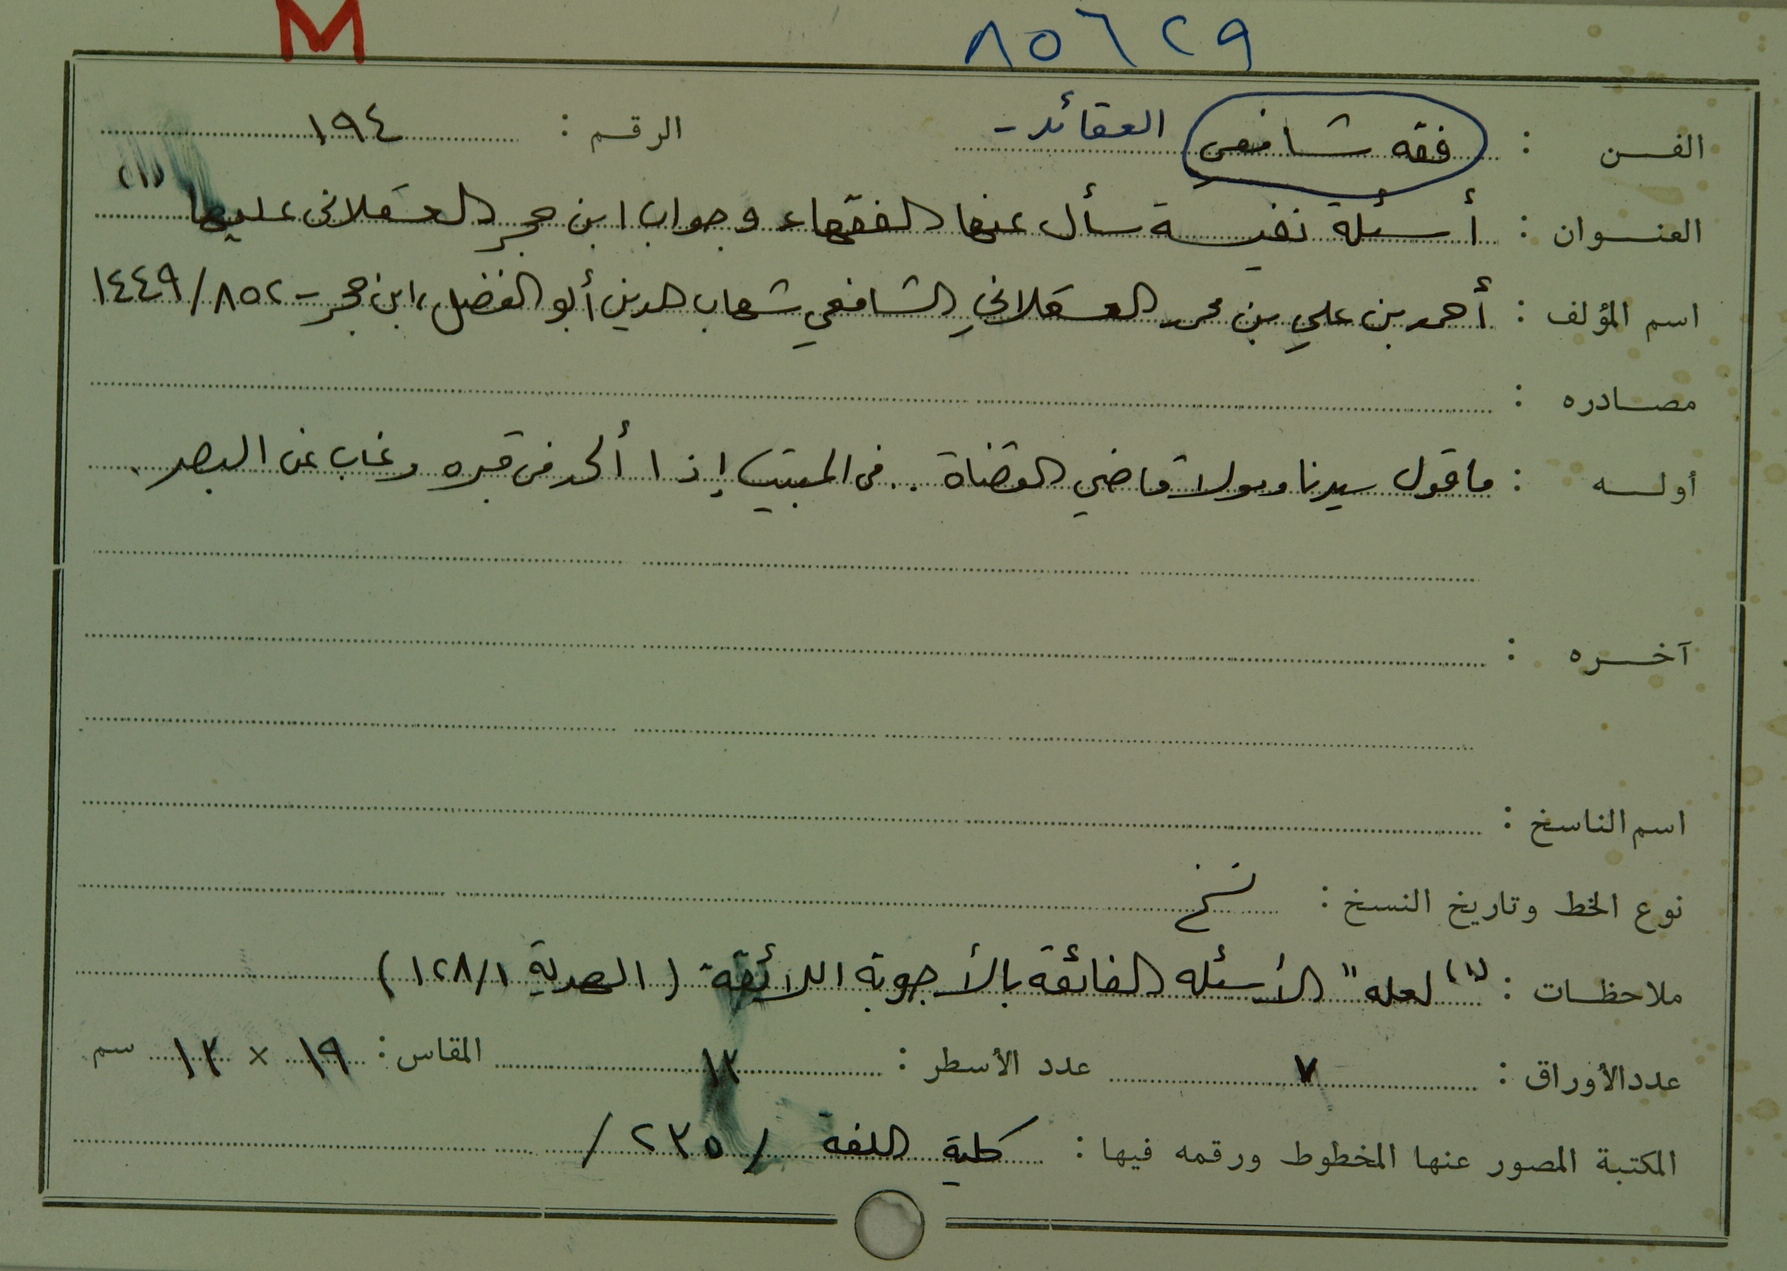 M ٨٥٦٢٩
الفن : فقه شافعي العقائد - الرقم : ١٩٤
العنوان : أسئلة نفيسة سأل عنها الفقهاء وجواب ابن حجر العسقلاني عليها (١)
اسم المؤلف : أحمد بن علي بن محمد العسقلاني الشافعي شهاب الدين أبو الفضل، ابن حجر - ٨٥٢/١٤٤٩
مصادره :
أوله : ما قول سيدنا ومولانا قاضي القضاة .. في الميت إذا ألحد في قبره وغاب عن البصر .
آخره :
اسم الناسخ :
نوع الخط وتاريخ النسخ : نسخ
ملاحظات : (١) لعله " الأسئلة الفائقة بالأجوبة اللائقة ( الهدية ١/١٢٨ )
عدد الأوراق : ٧ عدد الأسطر : ١٣ المقاس : ١٩ × ١٣ سم
المكتبة المصور عنها المخطوط ورقمه فيها : كلية اللغة / ٢٣٥ /